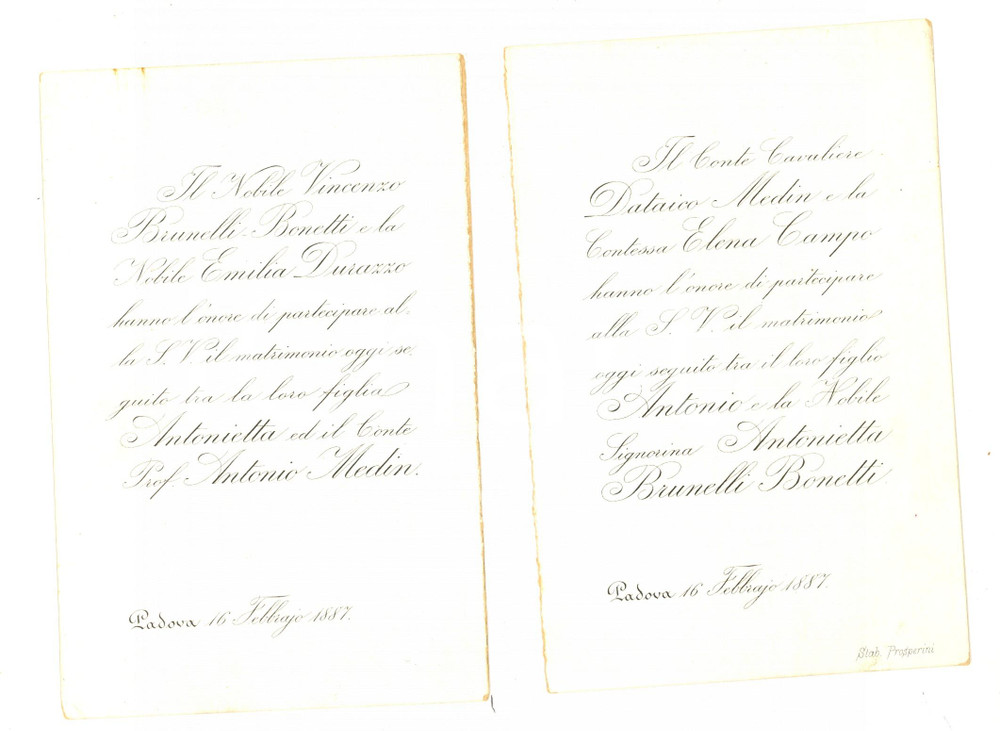 Il Nobile Vincenzo
Brunelli-Bonetti e la
Nobile Emilia Durazzo
hanno l'onore di partecipare al-
la S. V. il matrimonio oggi se-
guito tra la loro figlia
Antonietta ed il Conte
Prof. Antonio Medin.
Padova 16 Febbrajo 1887.
Il Conte Cavaliere
Dataico Medin e la
Contessa Elena Campo
hanno l'onore di partecipare
alla S. V. il matrimonio
oggi seguito tra il loro figlio
Antonio e la Nobile
Signorina Antonietta
Brunelli Bonetti.
Padova 16 Febbrajo 1887.
Stab. Prosperini